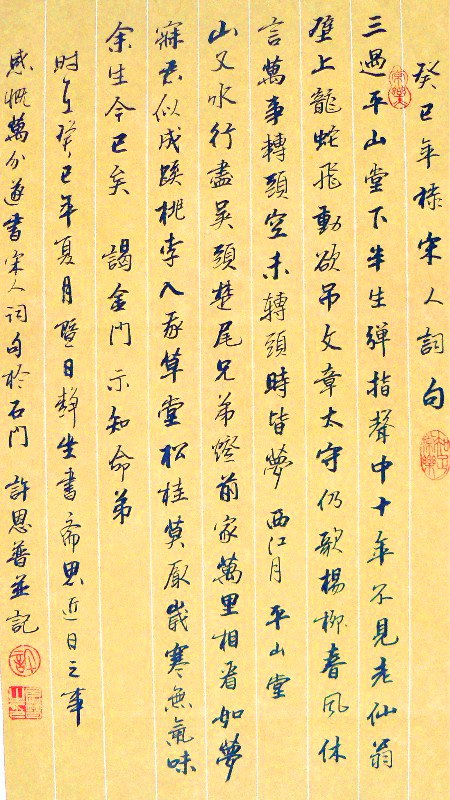 癸巳年宋人詞句
三過平山堂下半生彈指聲中十年不見老仙翁
壁上龍蛇飛動欲吊文章太守仍歌楊柳春風休
言萬事轉頭空未轉頭時皆夢 西江月 平山堂
山又水行盡吳頭楚尾兄弟燈前家萬里相看如夢
寐君似成蹊桃李入我草堂松桂莫厭歲寒無氣味
余生今已矣 謁金門示知命弟
时在癸巳年夏月暨日靜坐書齋思近日之事
感慨萬分遂書宋人詞句於石門 許恩普並記